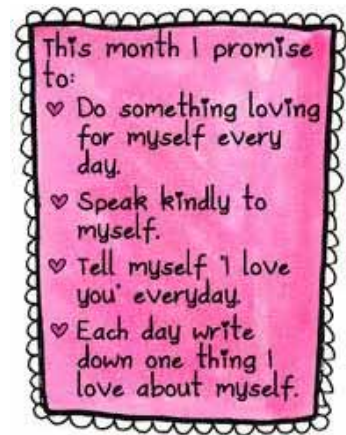 This month I promise
to:
Do something loving
for myself every
day.
Speak kindly to
myself.
Tell myself 'I love
you' everyday.
Each day write
down one thing I
love about myself.